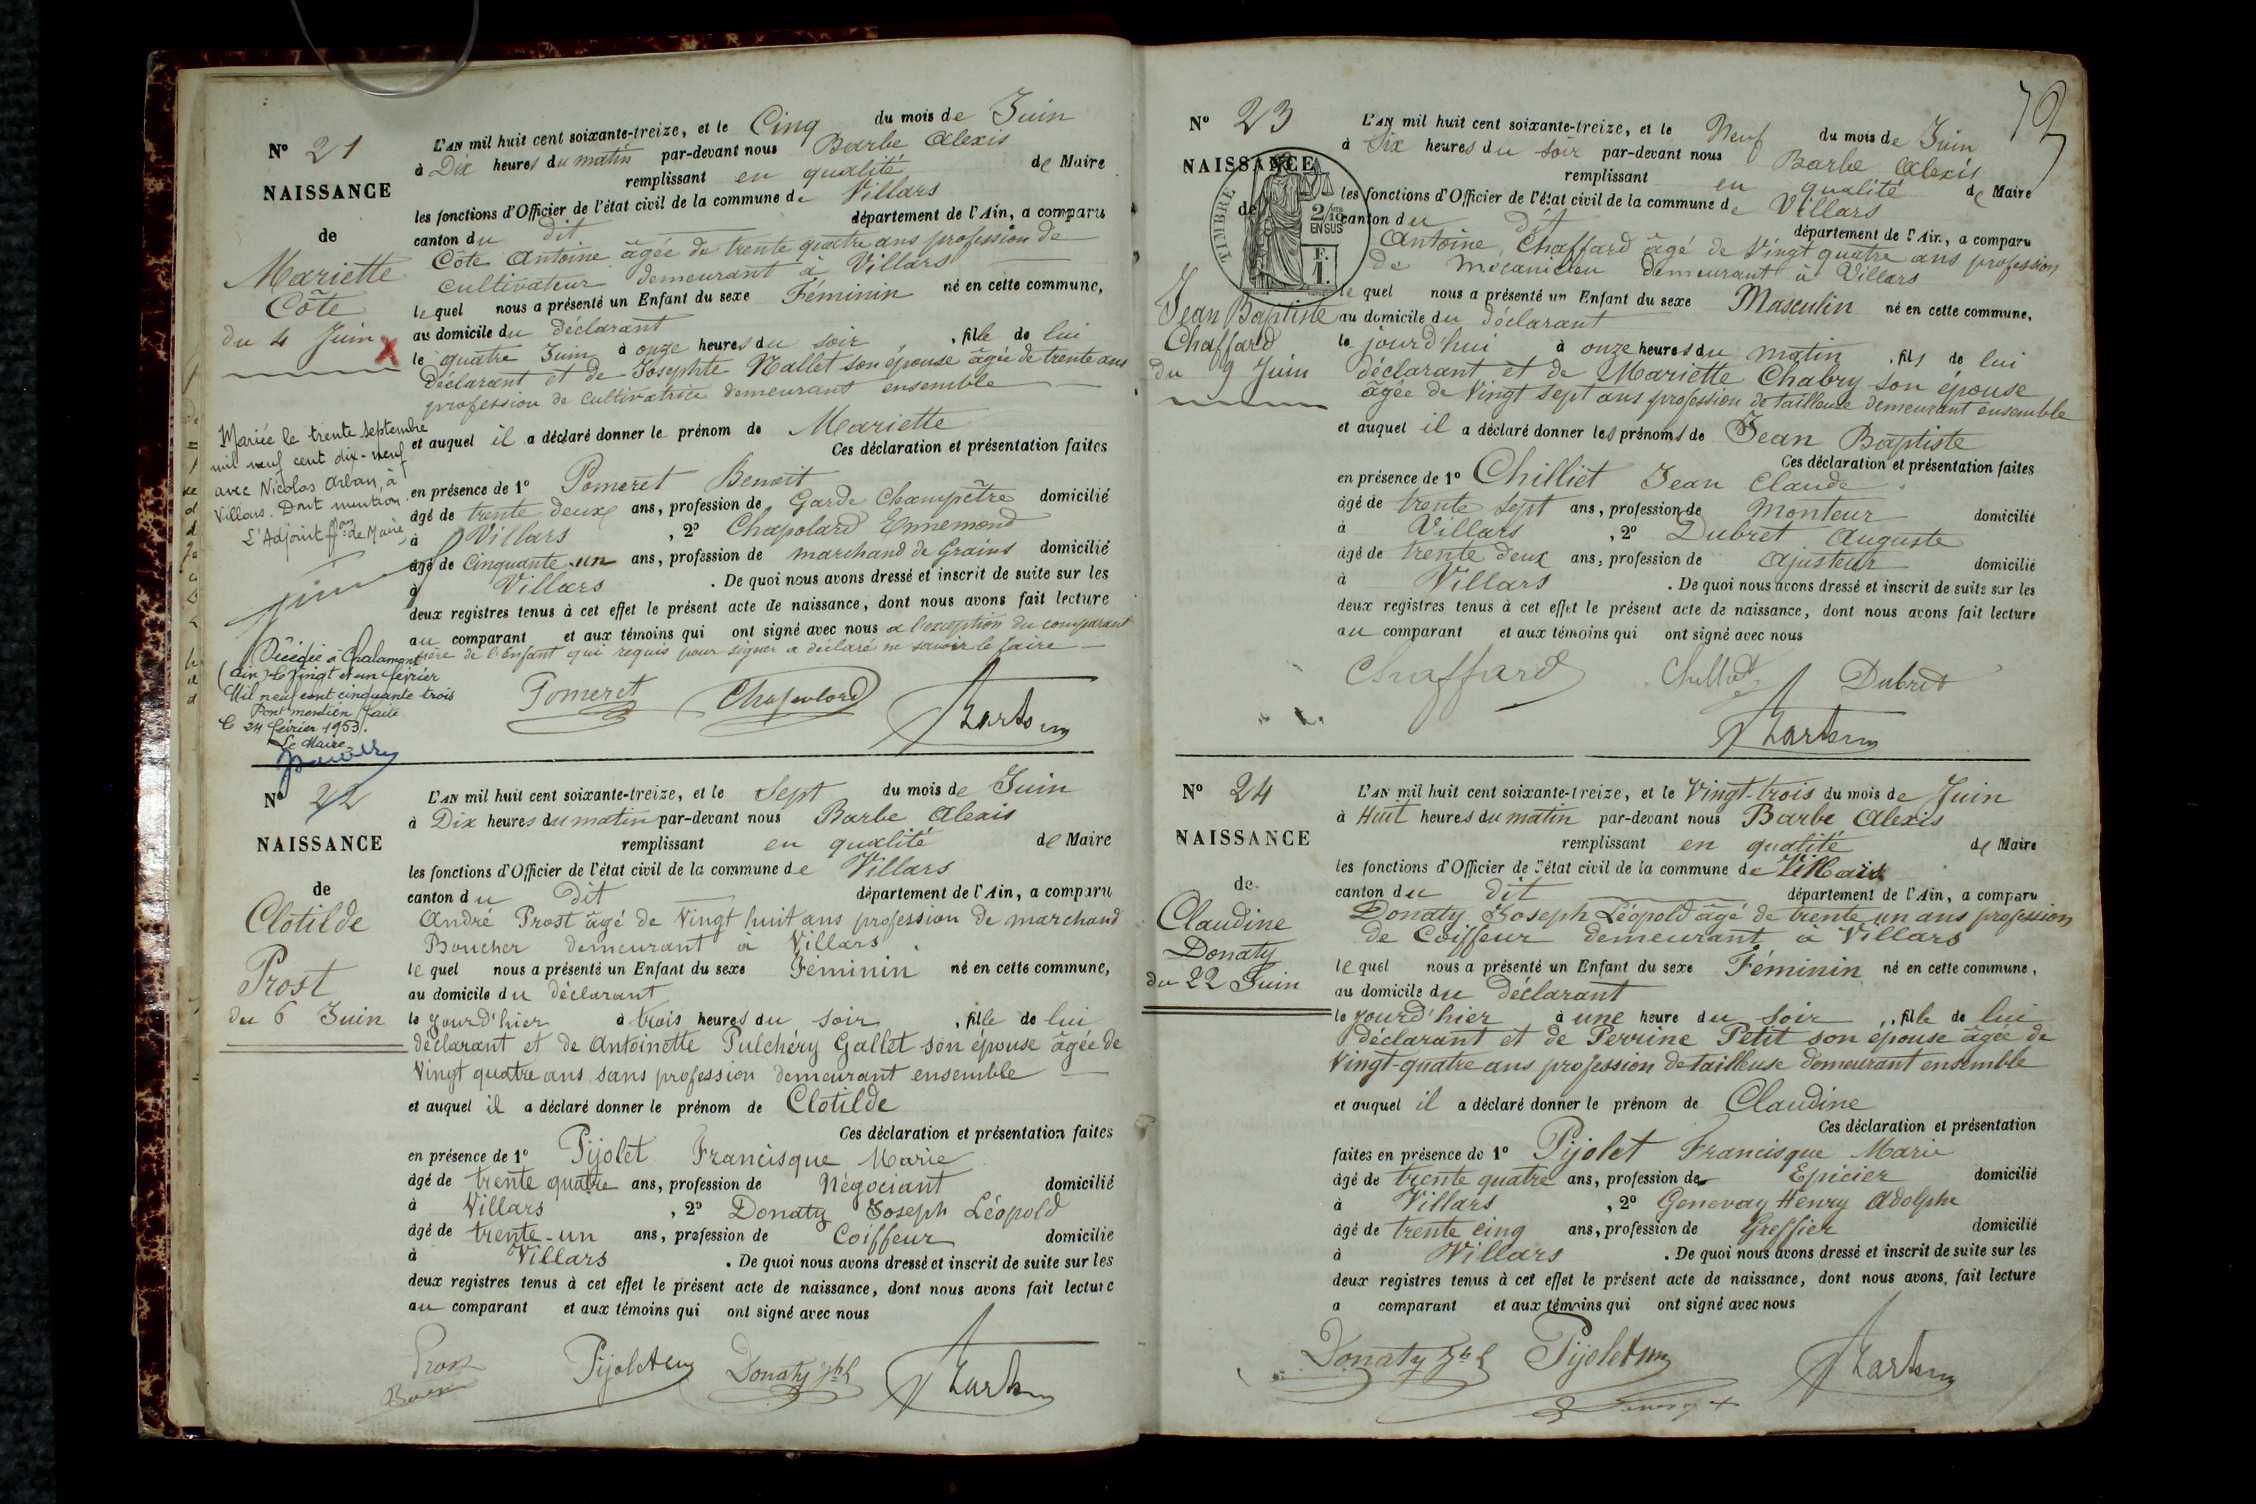 N° 21
NAISSANCE
de
Mariette
Côte
du 4 Juin
X
Mariée le trente septembre
mil neuf cent dix-neuf
avec Nicolas Arban, à
Villars. Dont mention
L'Adjoint ff.ons de Maire,
Décédée à Chalamont
(Ain) le vingt et un février
Mil neuf cent cinquante trois
Dont mention faite
le 24 février 1953.
Le Maire
L'AN mil huit cent soixante-treize, et le Cinq du mois de Juin
à Dix heures du matin par-devant nous Barbe Alexis
remplissant en qualité de Maire
les fonctions d'Officier de l'état civil de la commune de Villars
canton du dit département de l'Ain, a comparu
Côte Antoine âgée de trente quatre ans profession de
cultivateur demeurant à Villars
lequel nous a présenté un Enfant du sexe Féminin né en cette commune,
au domicile du déclarant
le quatre Juin à onze heures du soir, fille de lui
déclarant et de Josephte Nallet son épouse âgée de trente ans
profession de cultivatrice demeurant ensemble
et auquel il a déclaré donner le prénom de Mariette
Ces déclaration et présentation faites
en présence de 1° Pomeret Benoit
âgé de trente deux ans, profession de Garde Champêtre domicilié
à Villars, 2° Chapolard Ennemond
âgé de cinquante-un ans, profession de marchand de Grains domicilié
à Villars. De quoi nous avons dressé et inscrit de suite sur les
deux registres tenus à cet effet le présent acte de naissance, dont nous avons fait lecture
au comparant et aux témoins qui ont signé avec nous à l'exception du comparant
père de l'Enfant qui requis pour signer a déclaré ne savoir le faire
Pomeret Chapolard
N° 22
NAISSANCE
de
Clotilde
Prost
du 6 Juin
L'AN mil huit cent soixante-treize, et le Sept du mois de Juin
à Dix heures du matin par-devant nous Barbe Alexis
remplissant en qualité de Maire
les fonctions d'Officier de l'état civil de la commune de Villars
canton du dit département de l'Ain, a comparu
André Prost âgé de Vingt huit ans profession de marchand
Boucher demeurant à Villars.
lequel nous a présenté un Enfant du sexe Féminin né en cette commune,
au domicile du déclarant
le jourd'hier à trois heures du soir, fille de lui
déclarant et de Antoinette Pulchéry Gallet son épouse âgée de
Vingt quatre ans sans profession demeurant ensemble
et auquel il a déclaré donner le prénom de Clotilde
Ces déclaration et présentation faites
en présence de 1° Pijolet Francisque Marie
âgé de trente quatre ans, profession de Négociant domicilié
à Villars, 2° Donaty Joseph Léopold
âgé de trente-un ans, profession de Coiffeur domicilié
à Villars. De quoi nous avons dressé et inscrit de suite sur les
deux registres tenus à cet effet le présent acte de naissance, dont nous avons fait lecture
au comparant et aux témoins qui ont signé avec nous
Prost Pijolet Donaty
72
N° 23
NAISSANCE
de
TIMBRE
2/10
EN SUS
F.
1.
Jean Baptiste
Chaffard
du 9 Juin
L'AN mil huit cent soixante-treize, et le Neuf du mois de Juin
à Six heures du soir par-devant nous Barbe Alexis
remplissant en qualité de Maire
les fonctions d'Officier de l'état civil de la commune de Villars
canton du dit département de l'Ain, a comparu
Antoine Chaffard âgé de Vingt quatre ans profession
de Mécanicien demeurant à Villars
lequel nous a présenté un Enfant du sexe Masculin né en cette commune,
au domicile du déclarant
le jourd'hui à onze heures du matin, fils de lui
déclarant et de Mariette Chabry son épouse
âgée de Vingt sept ans profession de tailleuse demeurant ensemble
et auquel il a déclaré donner les prénoms de Jean Baptiste
Ces déclaration et présentation faites
en présence de 1° Chilliet Jean Claude
âgé de trente sept ans, profession de Monteur domicilié
à Villars, 2° Dubret Auguste
âgé de trente deux ans, profession de Ajusteur domicilié
à Villars. De quoi nous avons dressé et inscrit de suite sur les
deux registres tenus à cet effet le présent acte de naissance, dont nous avons fait lecture
au comparant et aux témoins qui ont signé avec nous
Chaffard Chilliet Dubret
N° 24
NAISSANCE
de
Claudine
Donaty
du 22 Juin
L'AN mil huit cent soixante-treize, et le Vingt-trois du mois de Juin
à Huit heures du matin par-devant nous Barbe Alexis
remplissant en qualité de Maire
les fonctions d'Officier de l'état civil de la commune de Villars
canton du dit département de l'Ain, a comparu
Donaty Joseph Léopold âgé de trente un ans profession
de Coiffeur demeurant à Villars
lequel nous a présenté un Enfant du sexe Féminin né en cette commune,
au domicile du déclarant
le jourd'hier à une heure du soir, fille de lui
déclarant et de Perrine Petit son épouse âgée de
Vingt-quatre ans profession de tailleuse demeurant ensemble
et auquel il a déclaré donner le prénom de Claudine
Ces déclaration et présentation
faites en présence de 1° Pijolet Francisque Marie
âgé de trente quatre ans, profession de Epicier domicilié
à Villars, 2° Genevay Henry Adolphe
âgé de trente cinq ans, profession de Greffier domicilié
à Villars. De quoi nous avons dressé et inscrit de suite sur les
deux registres tenus à cet effet le présent acte de naissance, dont nous avons fait lecture
a comparant et aux témoins qui ont signé avec nous
Donaty Pijolet